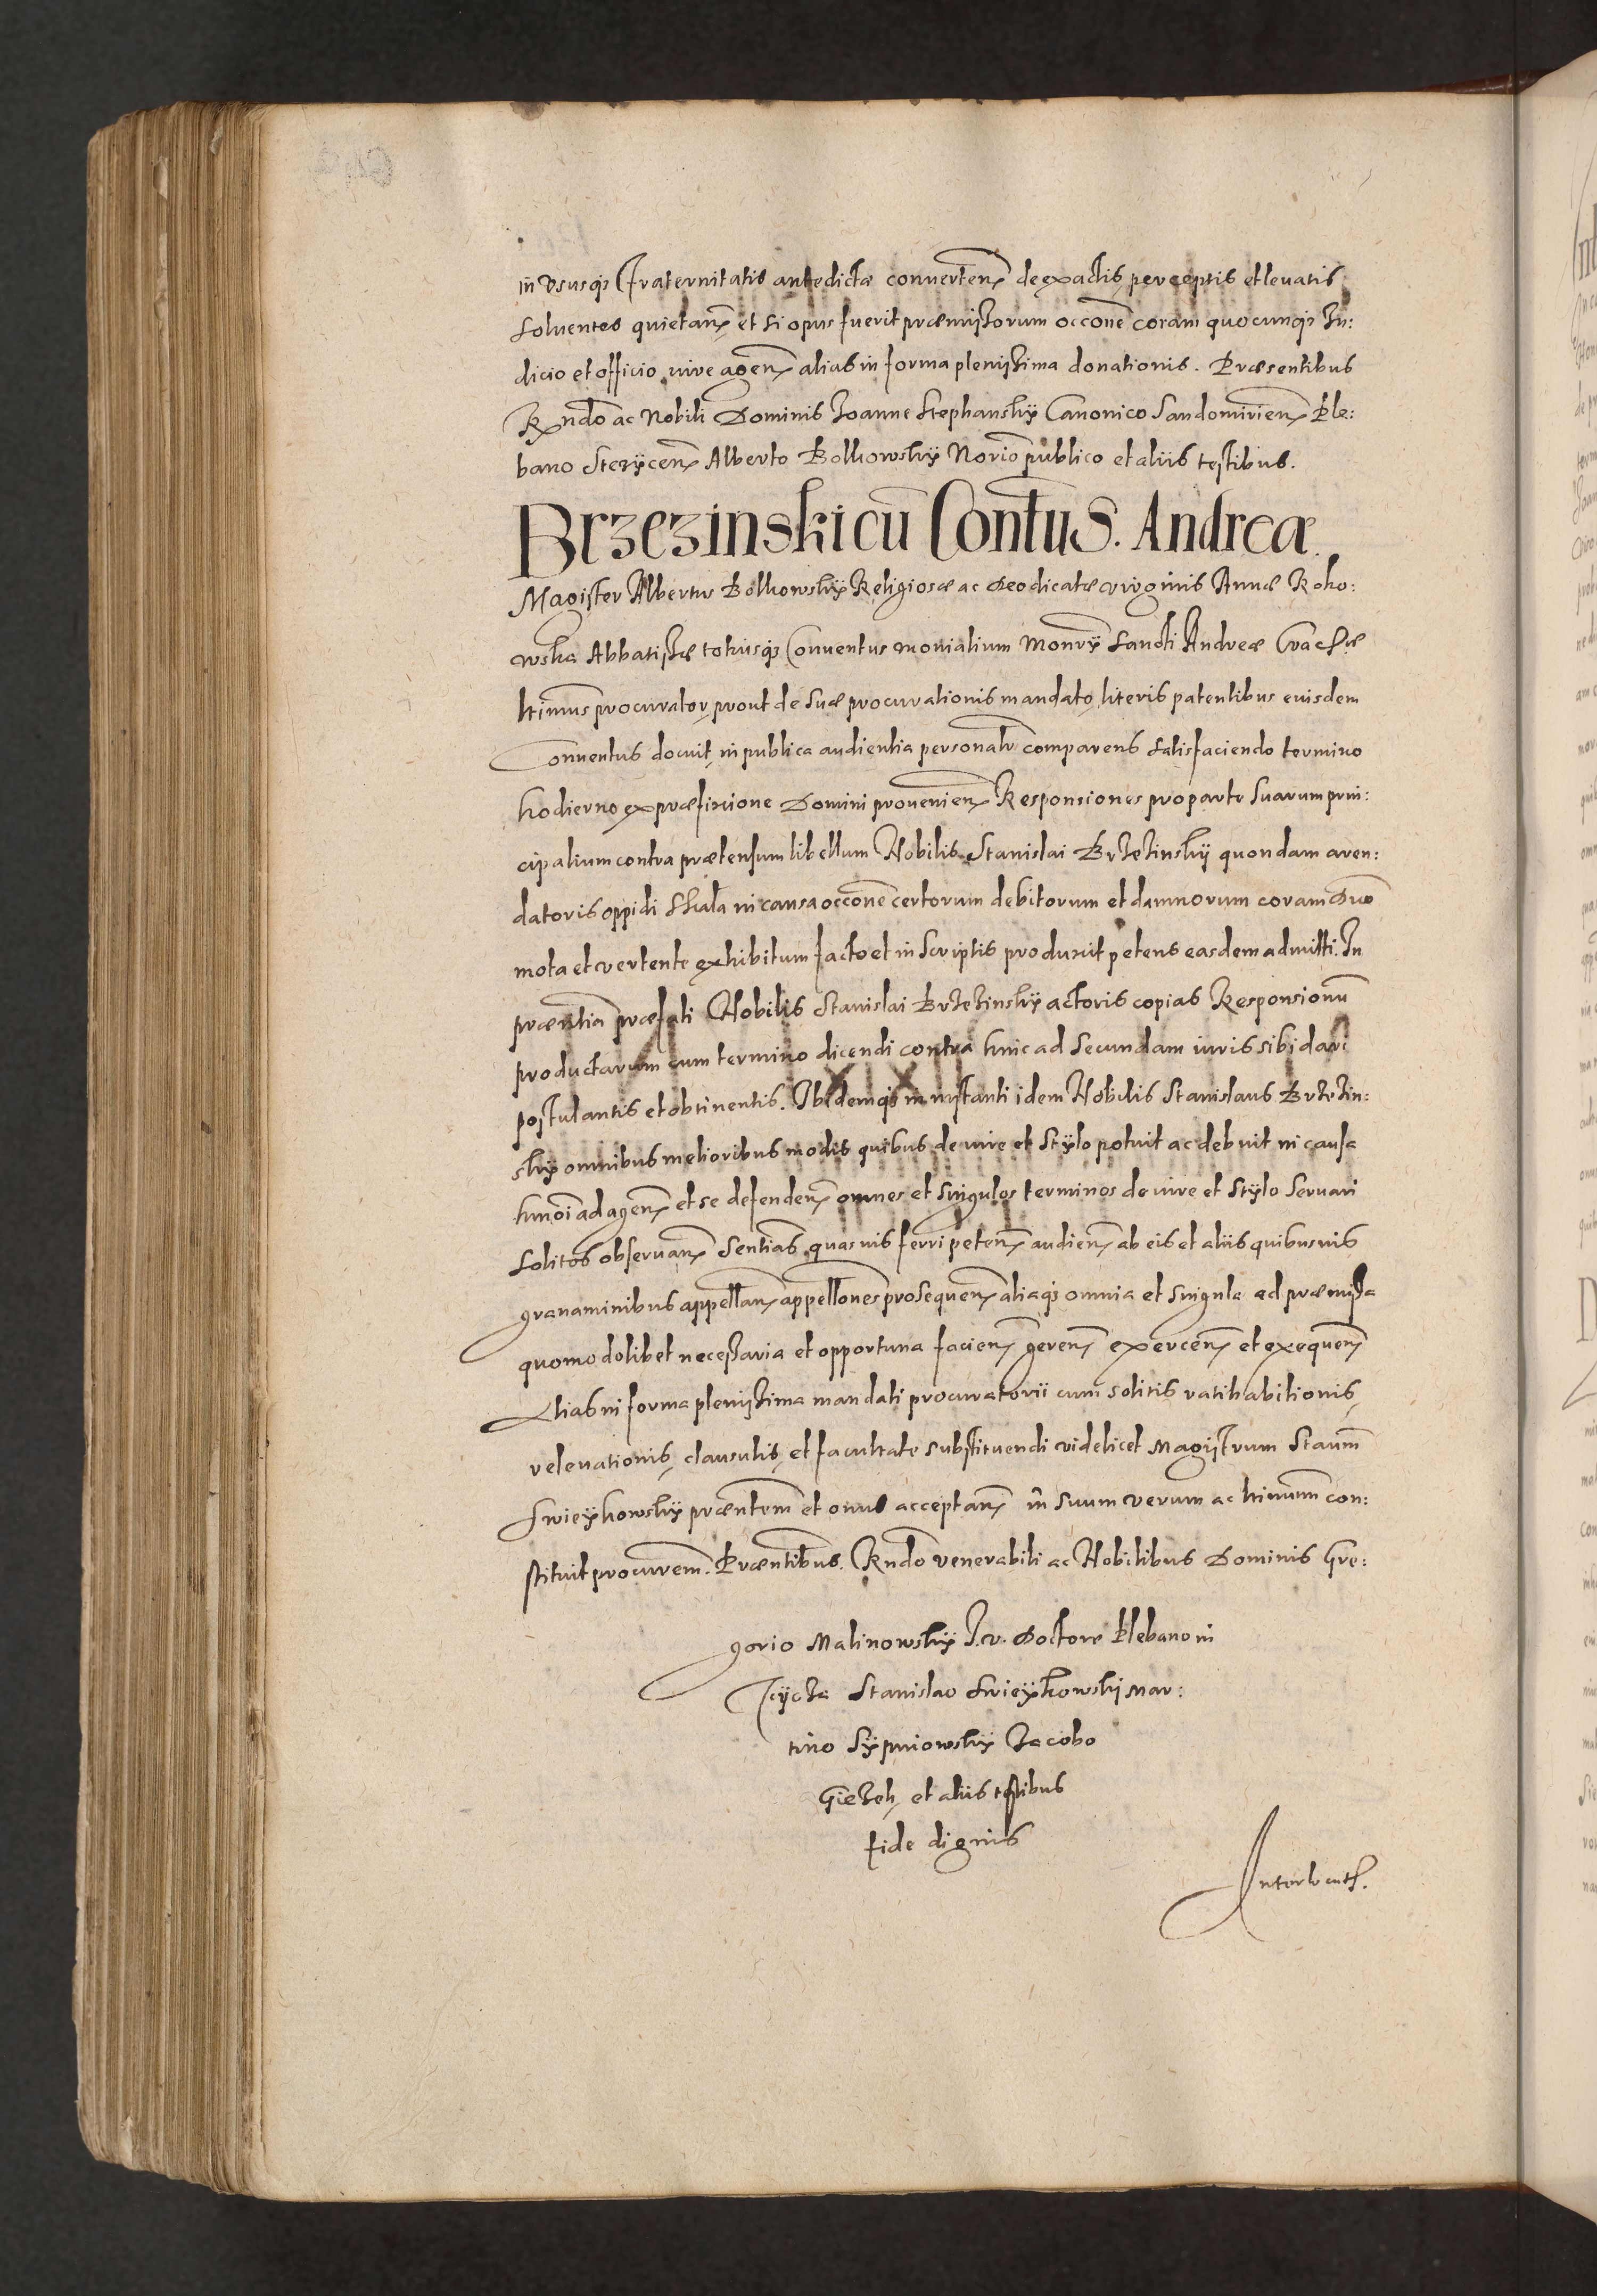 in Ususq₃ Fraternitatis antedictæ conuerten̄ de exactis perceptis et leuatis
soluentes quietan̄ et si opus fuerit præmissorum occōne coram quocunq₃ Iu:
dicio et officio iure agen̄ alias in forma plenissima donationis. Præsentibus
Rndo ac Nobili Dominis Ioanne Stephansky Canonico Sandomirien̄ Ple:
bano Alberto Bolkowsky Norio publico et aliis testibus.
Brzezinski cū Contūs. Andreæ
Magister Albertus Bolkowsky Religiosæ ac deodicatæ virginis Annæ Koko:
wska Abbatissæ totiusq₃ Conuentus monialium Monrÿ Sancti Andreæ
ltimus procurator, prout de suæ procurationis mandato, literis patentibus eiusdem
Conuentus docuit, in publica audientia personalr comparens satisfaciendo termino
hodierno ex præfixione Domini prouenien̄ Responsiones pro parte suarum prin:
cipalium contra prætensum libellum Nobilis Stanislai Brzezinsky quondam aren:
datoris oppidi Skala in causa occōne certorum debitorum et damnorum coram Dno
mota et vertente exhibitum facto et in scriptis produxit petens easdem admitti. In
præntia præfati Nobilis Stanislai Brzezinsky actoris copias Responsionū
productarum cum termino dicendi contra hinc ad secundam iuris sibi dari
postulantis et obtinentis. Ibidemq₃ in instanti idem Nobilis Stanislaus Brzezin:
sky omnibus melioribus modis quibus de iure et stylo potuit ac debuit in causa
hmōi ad agen̄ et se defenden̄ omnes et singulos terminos de iure et stylo seruari
solitos obseruan̄ sentias quasuis ferri peten̄ audien̄ ab eis et aliis quibusuis
grauaminibus appellan̄ appellones prosequen̄ aliaq₃ omnia et singula ad præmissa
quomodolibet necessaria et opportuna facien̄ geren̄ exercen̄ et exequen̄
Alias in forma plenissima mandati procuratorii cum solitis ratihabitionis,
releuationis, clausulis, et facultate substituendi videlicet Magistrum Staum
Swieykowsky præntem et onus acceptan̄ in suum verum ac ltimum con:
stituit procurem. Præntibus. Rndo venerabili ac Nobilibus Dominis Gre:
gorio Malinowsky I. v. Doctore Plebano in
Stanislao Swieykowski Mar:
tino Sypniowsky Iacobo
Giezek, et aliis testibus
fide dignis